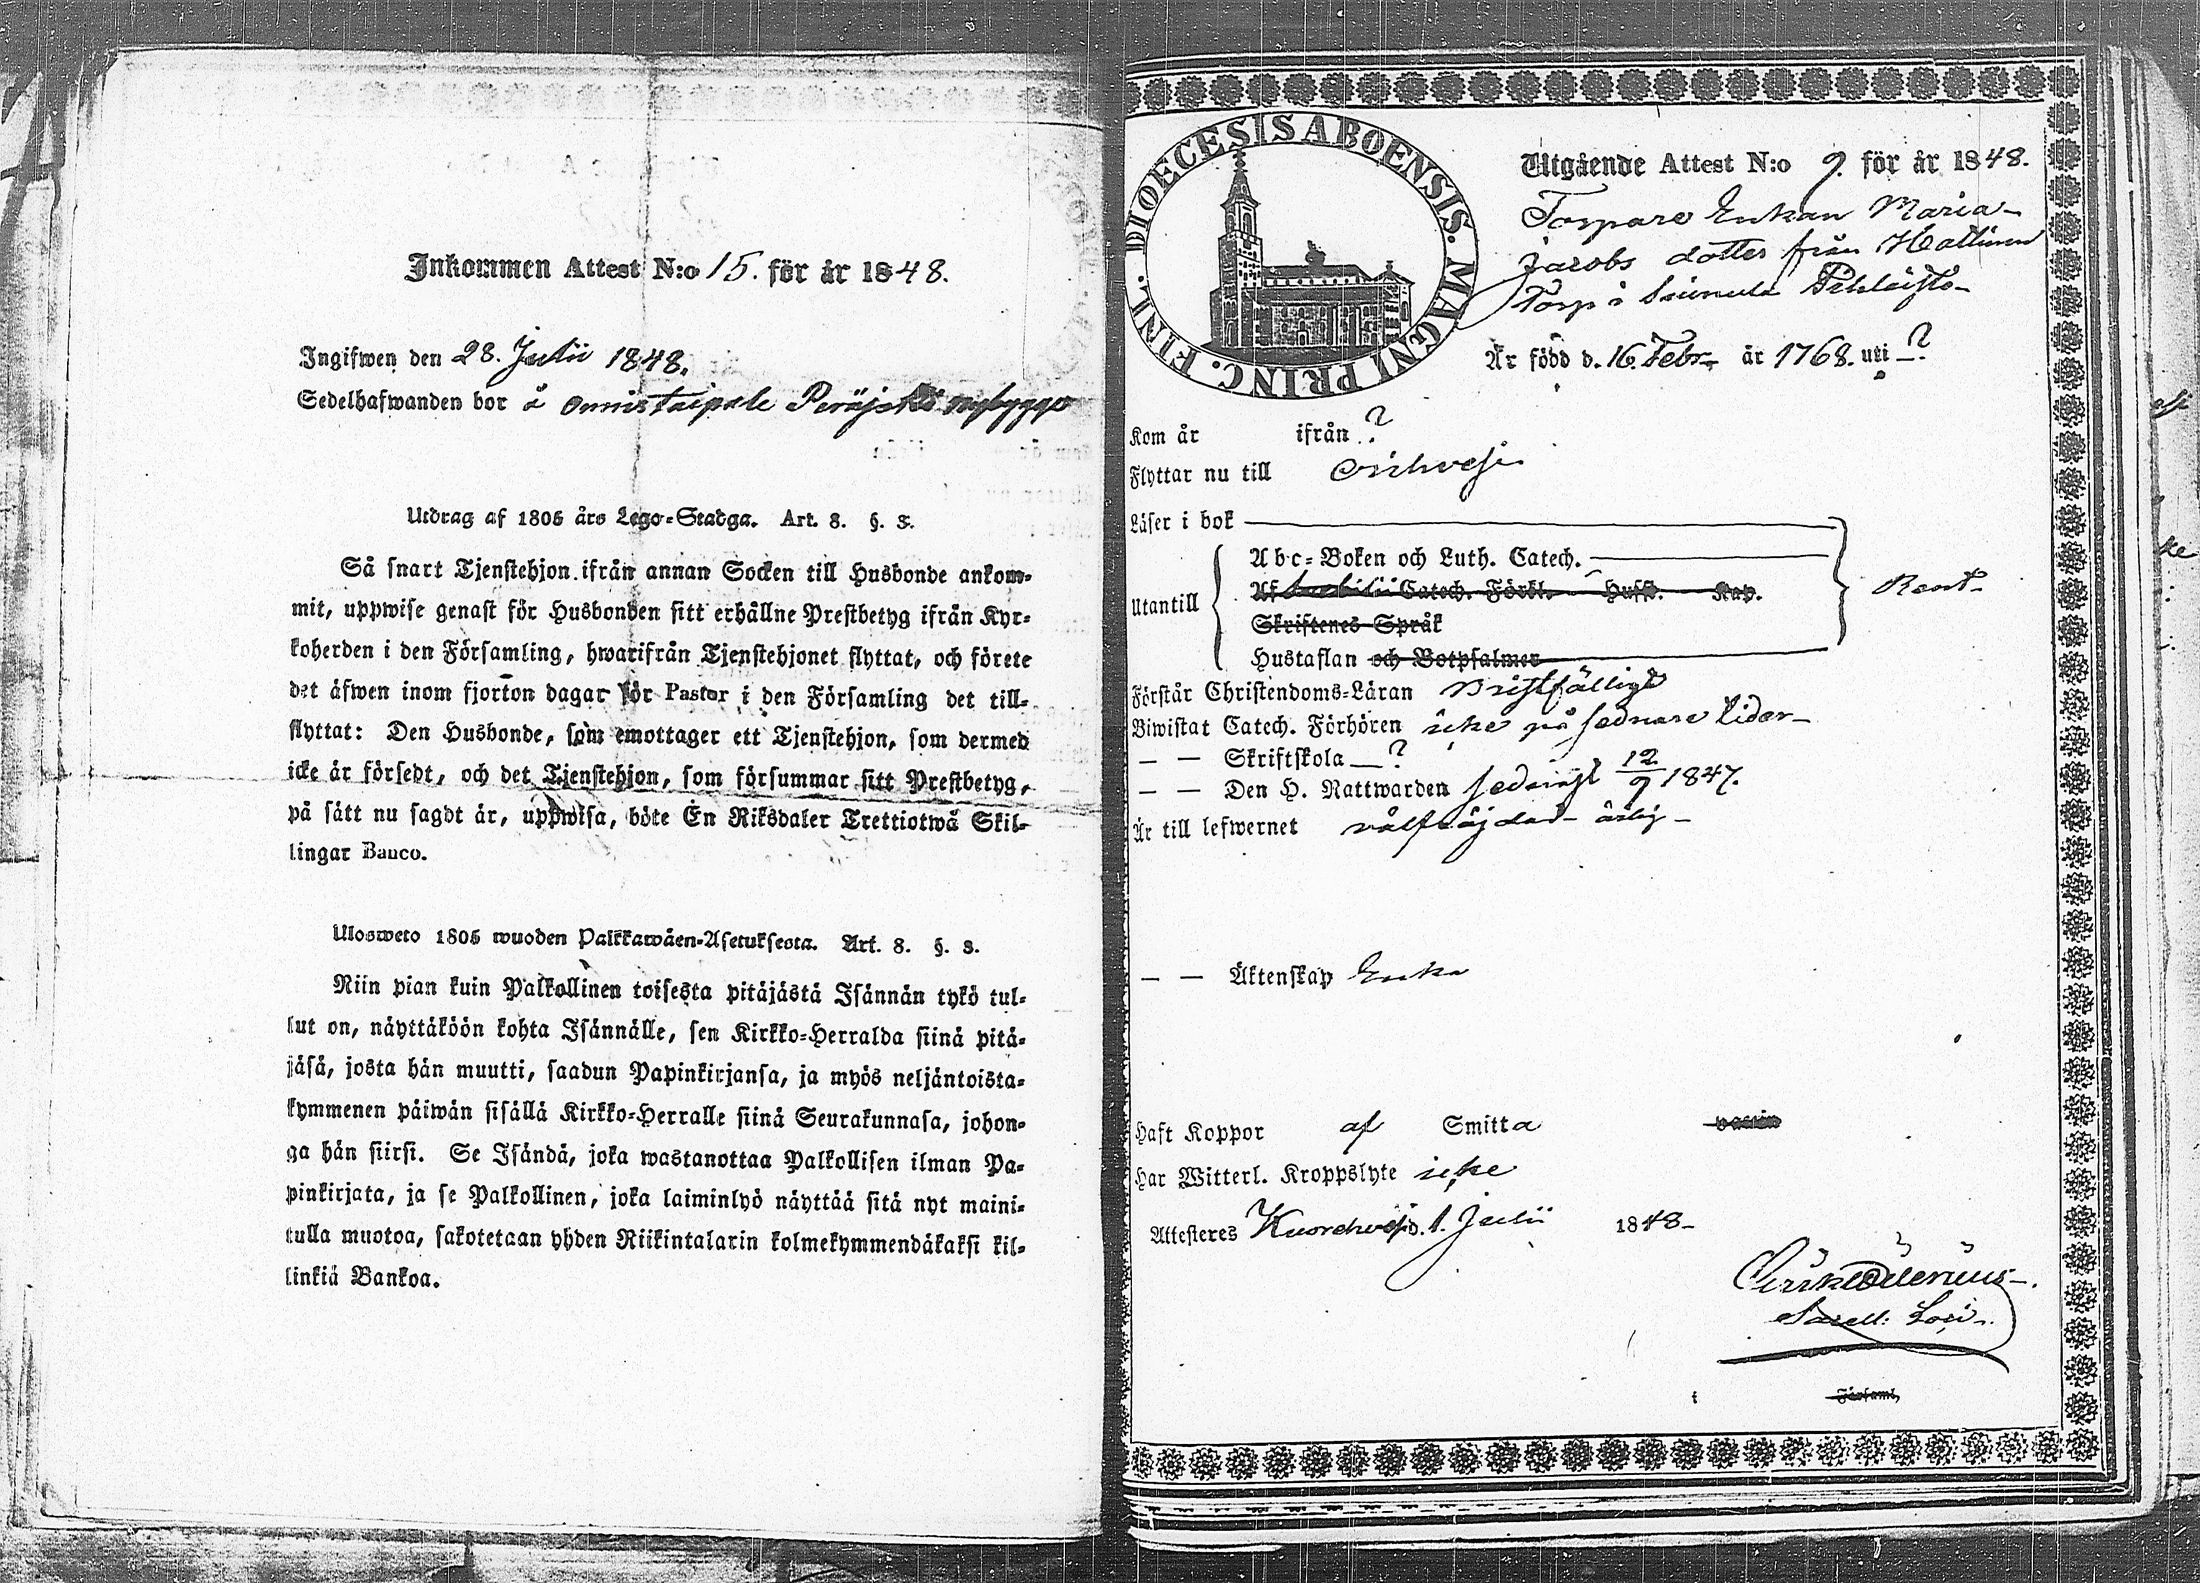 Inkommen Attest N:o 15. för år 1848.
Ingifwen den 28. Julii 1848.
Sedelhafwanden bor å Onnistaipale Peräjoki nybygge
Utdrag af 1805 års Lego-Stadga. Art. 8. §. 3.
Så snart Tjenstehjon ifrån annan Socken till Husbonde ankom-
mit, uppwise genast för Husbonden sitt erhållne Prestbetyg ifrån Kyr-
koherden i den Församling, hwarifrån Tjenstehjonet flyttat, och förete
det äfwen inom fjorton dagar för Pastor i den Församling det till-
flyttat: Den Husbonde, som emottager ett Tjenstehjon, som dermed
icke är försedt, och det Tjenstehjon, som försummar sitt Prestbetyg,
på sätt nu sagdt är, uppwisa, böte En Riksdaler Trettiotwå Skil-
lingar Banco.
Ulosweto 1805 wuoden Palkkawäen-Asetuksesta. Art. 8. §. 3.
Niin pian kuin Palkollinen toisesta pitäjästä Isännän tykö tul-
lut on, näyttäköön kohta Isännälle, sen Kirkko-Herralda siinä pitä-
jäsä, josta hän muutti, saadun Papinkirjansa, ja myös neljäntoista-
kymmenen päiwän sisällä Kirkko-Herralle siinä Seurakunnasa, johon-
ga hän siirsi. Se Isändä, joka wastanottaa Palkollisen ilman Pa-
pinkirjata, ja se Palkollinen, joka laiminlyö näyttää sitä nyt maini-
tulla muotoa, sakotetaan yhden Riikintalarin kolmekymmendäkaksi kil-
linkiä Bankoa.
DIOECESIS ABOENSIS. MAGNI PRINC. FINL.
Utgående Attest N:o 9. för år 1848.
Torpare Enkan Maria
Jacobs dotter från Hallinen
Torp å
Är född d. 16. Febr. år 1768. uti ?
Kom år ifrån ?
Flyttar nu till Orihvesi
Läser i bok
Abc-Boken och Luth. Catech.
Utantill Af Catech. Förkl. Hufst. Kap. Rent
Skriftenes Språk
Hustaflan och Botpsalmer
Förstår Christendoms-Läran Bristfälligt
Biwistat Catech. Förhören icke på sednare tider
— — Skriftskola ?
— — Den H. Nattwarden sednast 12/9 1847.
Är till lefwernet välfräjdad ärlig
— — Äktenskap Enka
Haft Koppor af Smitta
Har Witterl. Kroppslyte icke
Attesteres Kuorehvesi d. 1. Julii 1848
Sacell:
i Församl.